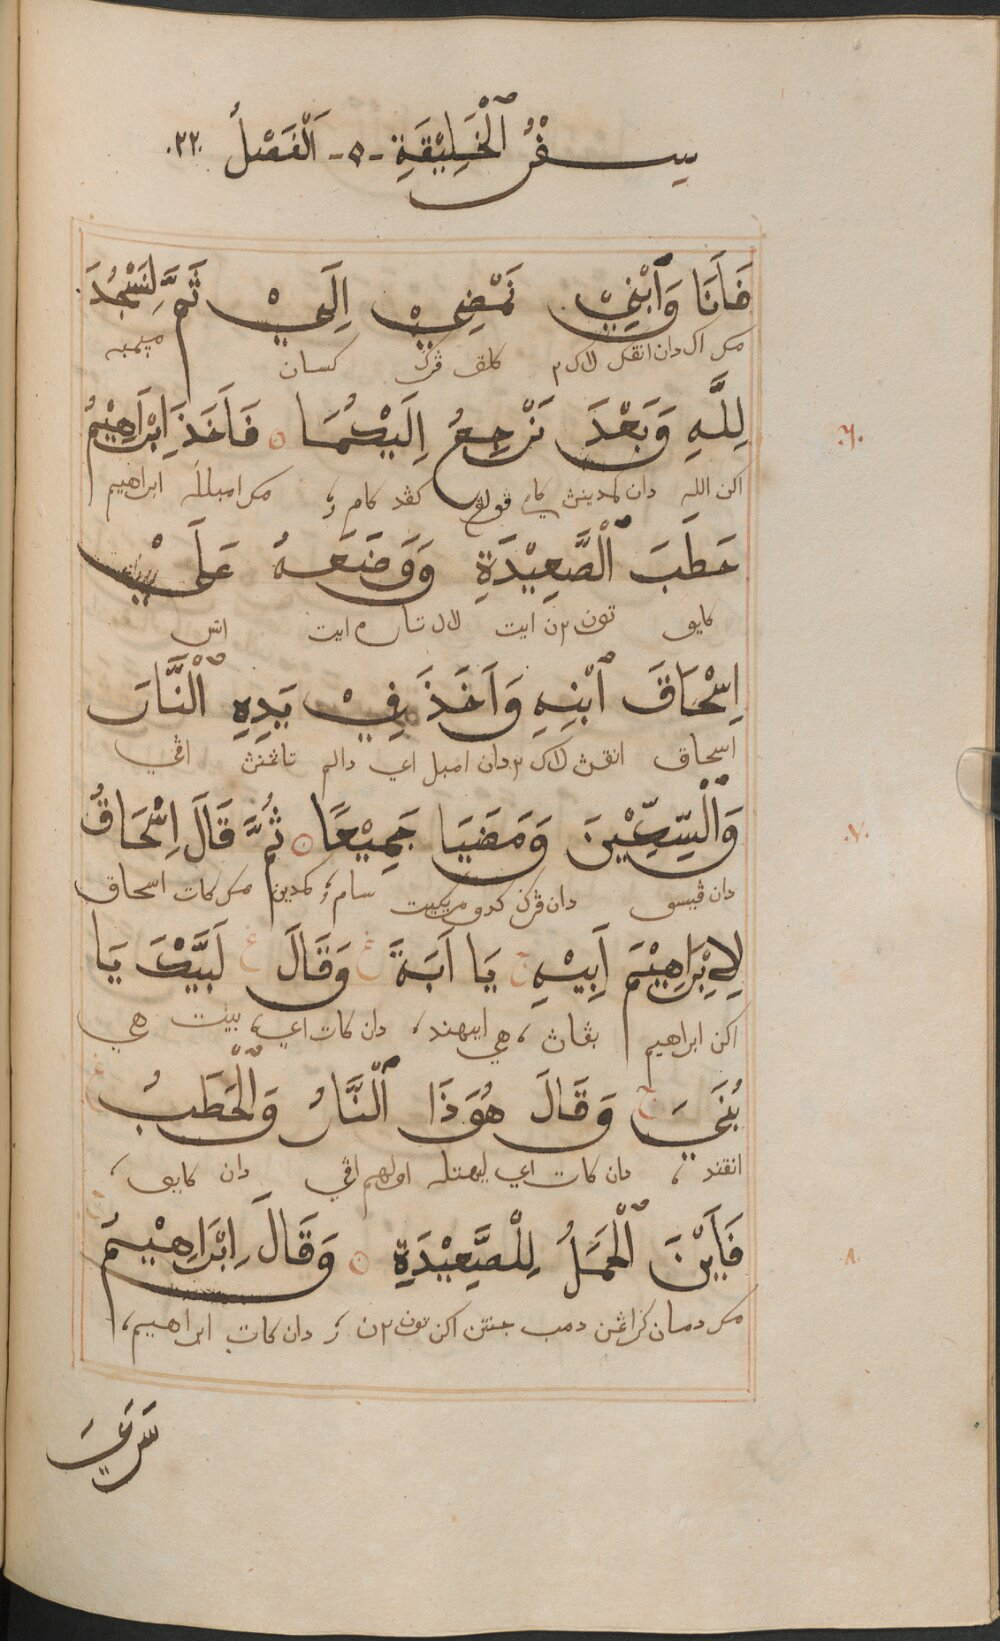 سِفْرُ ٱلْخَلِيْقَةِ -٥- اَلْفَصْلُ .٢٢.
فَاَنَا وَٱبْنِيْ نَمْضِيْ اِلَيْ ثَمَّ لِنَسْجُدَ
مك اك دان انقكـ لاك٢ كلق ڤرݢ كسان ميمبه
لِلَّهِ وَبَعْدَ نَرْجِعُ اِلَيْكُمَا ۞ فَاَخَذَ اِبْرَاهِيْمُ .٦.
اكن الله دان كمدينڽ كامي ڤولڠ كڤد كامو ؛ مك امبيلله ابراهيم
حَطَبَ ٱلْصَّعِيْدَةِ وَوَضَعَهُ عَلَيْ
كايو تون٢ن ايت لال تاره ايت اتس
اِسْحَاقَ ٱبْنِهِ وَاَخَذَ فِيْ يَدِهِ ٱلْنَّارَ
اسحاق انقڽ لاك٢ دان امبل اي دالم تاڠنڽ اڤي
وَٱلْسِّكِّيْنَ وَمَضَيَا جَمِيْعًا ۞ ثُمَّ قَالَ اِسْحَاقُ .٧.
دان ڤيسو دان ڤرݢ كدو مريكيت سام ؛ كمدين مك كات اسحاق
لِاِبْرَاهِيْمَ اَبِيْهِ يَا اَبَةَ وَقَالَ لَبَّيْكَ يَا
اكن ابراهيم بڤاڽ ، هي ايبهند ، دان كات اي ، بيت هي
بُنَيَّ وَقَالَ هُوَذَا ٱلْنَّارُ وَٱلْحَطَبُ
انقند ، دان كات اي ليهتله اولهم اڤي دان كايو ،
فَاَيْنَ ٱلْحَمَلُ لِلْصَّعِيْدَةِ ۞ وَقَالَ اِبْرَاهِيْمُ ٨.
مك دمان دمب جنتن اكن تون٢ن ؛ دان كات ابراهيم ،
سَرَعَيَ